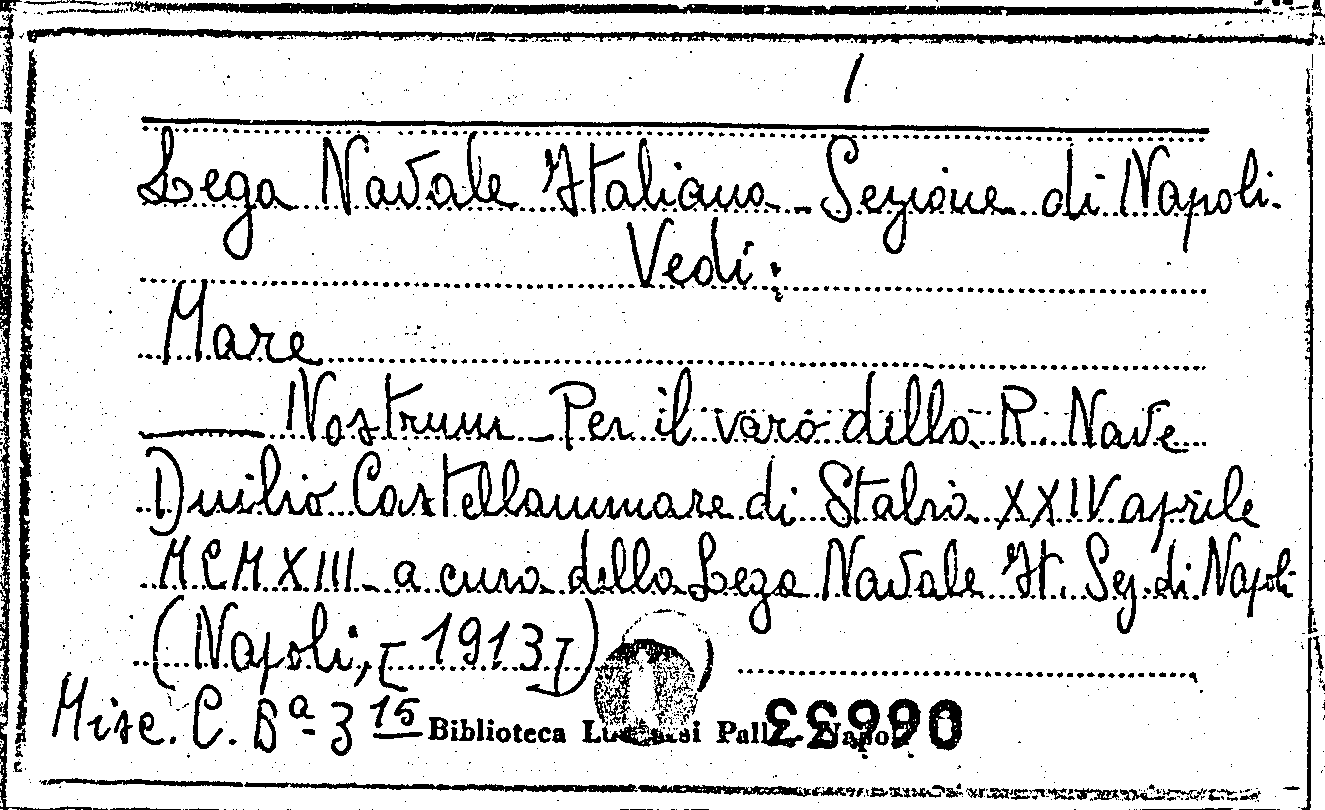 1
Lega Navale Italiana - Sezione di Napoli.
Vedi:
Mare
—— Nostrum - Per il varo della R. Nave
Duilio Castellammare di Stabia XXIV aprile
MCMXIII - a cura della Lega Navale It. Sez. di Napoli
(Napoli, [1913])
Misc. C. Bª - 3 15
Biblioteca Lucchesi Palli - Napoli
06633